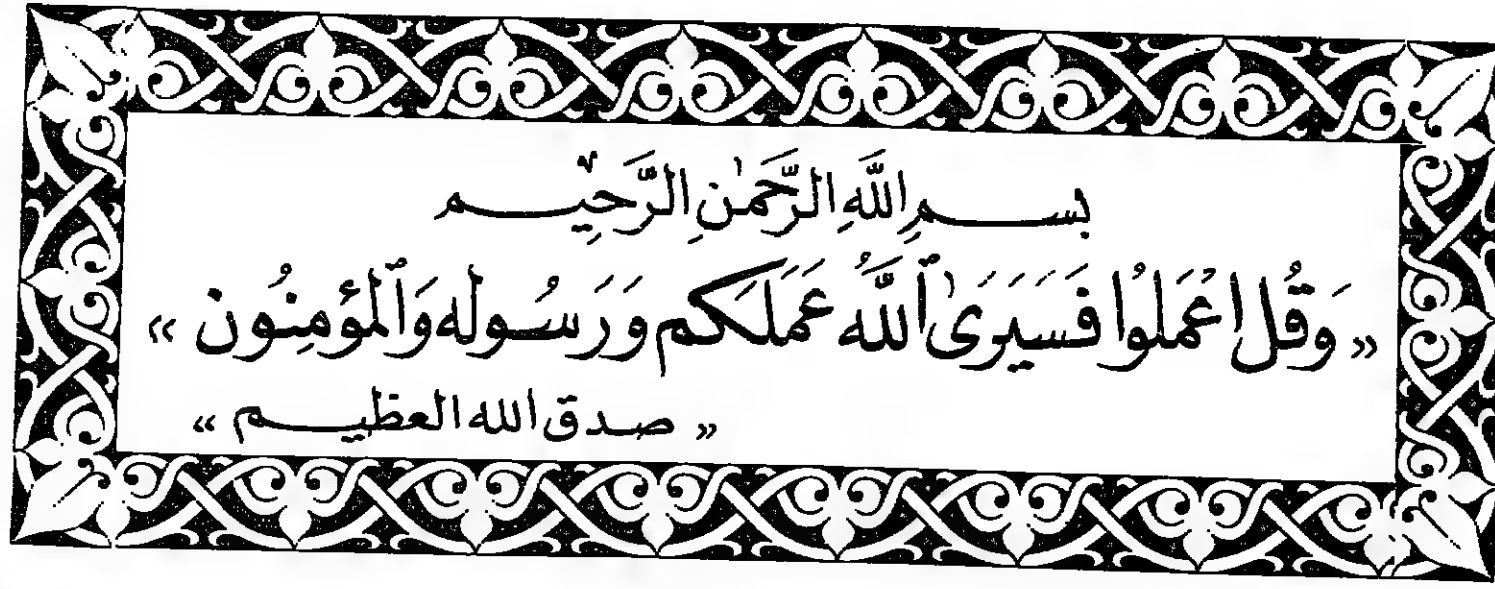 بِســمِ اللَّهِ الرَّحْمَٰنِ الرَّحِيــم
« وَقُل اعْمَلُوا فَسَيَرَىٰ ٱللَّهُ عَمَلَكُم وَرَسُوله وَٱلْمُؤمِنُون »
« صدق الله العظيــم »